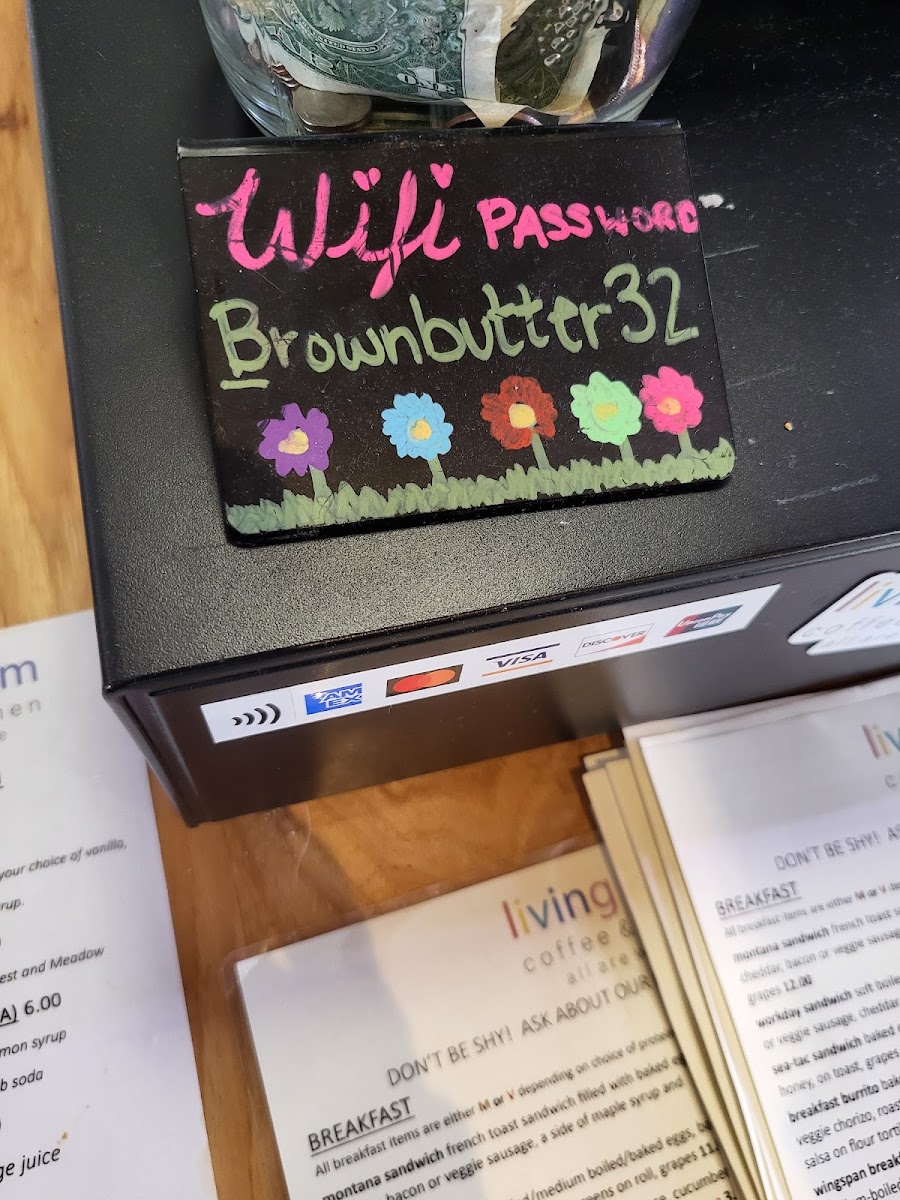 ONE
Wifi PASSWORD
Brownbutter32
AMEX
VISA
DISCOVER
UnionPay
livin
coffee
m
your choice of vanilla,
rup.
est and Meadow
A) 6.00
mon syrup
b soda
ge juice
living
coffee &
all are
DON'T BE SHY! ASK ABOUT OUR
BREAKFAST
All breakfast items are either M or V depending on choice of
montana sandwich french toast sandwich filled with baked
bacon or veggie sausage, a side of maple syrup and
/medium boiled/baked eggs,
eens on roll, grapes 11.
cucumber
liv
DON'T BE SHY! AS
BREAKFAST
All breakfast items are either M or V
montana sandwich french toast
cheddar, bacon or veggie sausag
grapes 12.00
workday sandwich soft boile
or veggie sausage, cheddar
sea-tac sandwich baked
honey, on toast, grapes
breakfast burrito bak
veggie chorizo, roas
salsa on flour torti
wingspan break
m-boiled